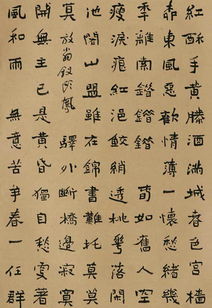 紅酥手黃滕酒滿城春色宮牆
柳東風惡歡情薄一懷愁緒幾
年離索錯錯錯春如舊人空
瘦淚痕紅浥鮫綃透桃花落閑
池閣山盟雖在錦書難托莫莫
莫 放翁釵頭鳳 驛外斷橋邊寂寞
開無主已是黃昏獨自愁更著
風和雨無意苦爭春一任群